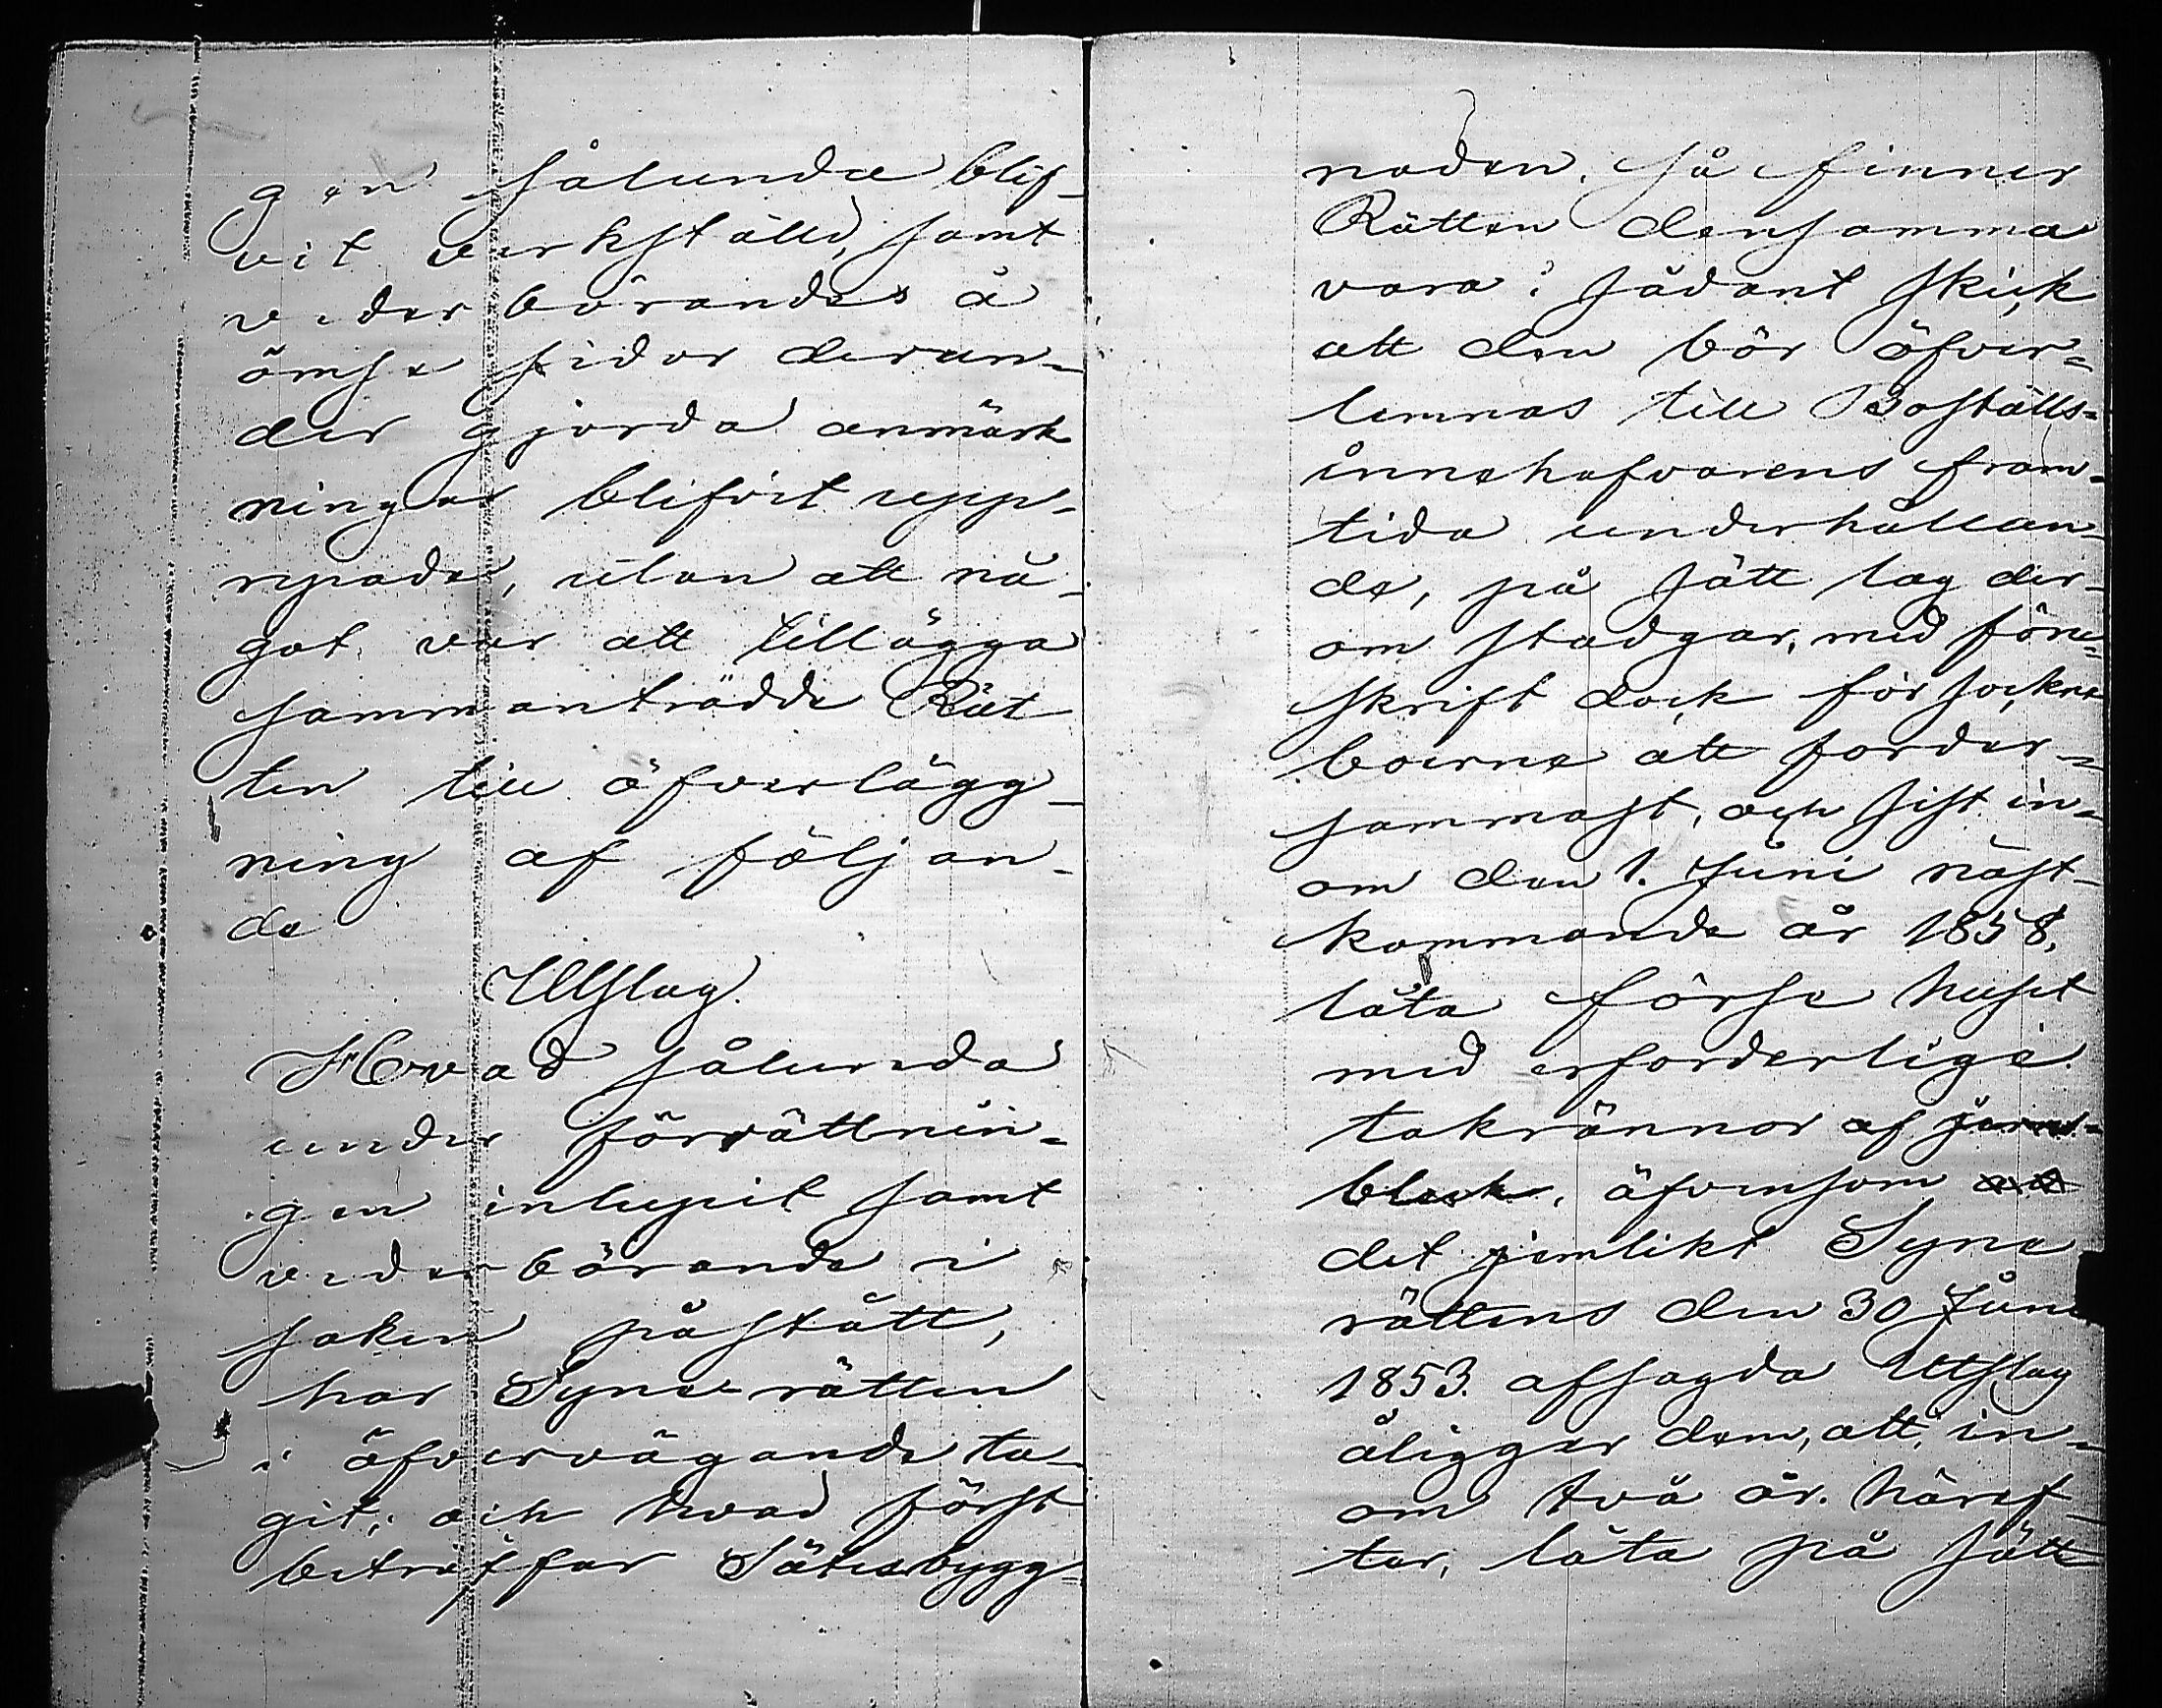 gen sålunda blif-
vit verkställd, samt
vederbörandes å
ömse sidor derun-
der gjorda anmärk
ningar blifvit upp-
repade, utan att nå-
got var att tillägga
sammanträdde Rät
ten till öfverlägg-
ning af följan-
de
Utslag.
Hvad sålunda
under förrättnin-
gen inlupit samt
vederbörande i
saken påstått,
har Syne-rätten
i öfvervägande ta-
git; och hvad först
beträffar Sätesbygg-
naden. så finner
Rätten densamma
vara i sådant skick
att den bör öfver-
lemnas till Boställs-
innehafvarens fram-
tida underhållan-
de, på sätt lag der-
om stadgar, med före-
skrift dock för sockne
boerne att forder-
sammast, och sist in-
om den 1. Juni näst-
kommande år 1858,
låta förse huset
med erforderliga
takrännor af jern-
bleck, äfvensom
det jemlikt Syne
rättens den 30 Juni
1853. afsagda Utslag
åligger dem, att, in-
om två år. häref-
ter, låta på sätt